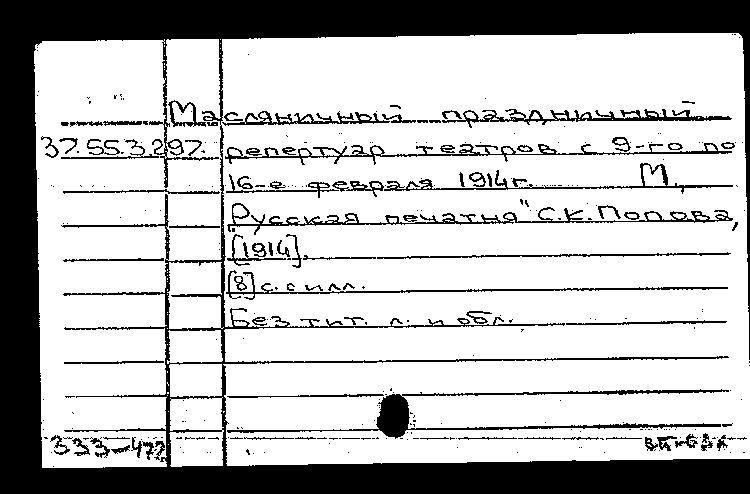 Масляничный праздничный
37.55.3.297. репертуар театров с 9-го по
16-е февраля 1914г. М.,
"Русская печатня" С.К. Попова,
[1914].
[8] с. с илл.
Без тит. л. и обл.
333-472